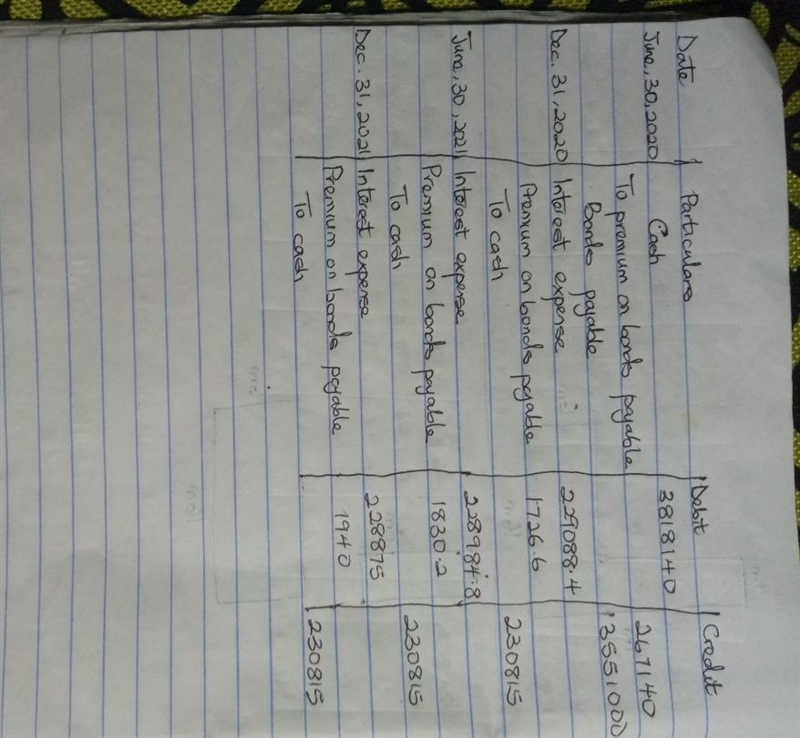 Date Particulars Debit Credit
June, 30, 2020 Cash 3818140
To premium on bonds payable 267140
Bonds payable 3551000
Dec. 31, 2020 Interest expense 229088.4
Premium on bonds payable 1726.6
To cash 230815
June, 30, 2021 Interest expense 228984.8
Premium on bonds payable 1830.2
To cash 230815
Dec. 31, 2021 Interest expense 228875
Premium on bonds payable 1940
To cash 230815